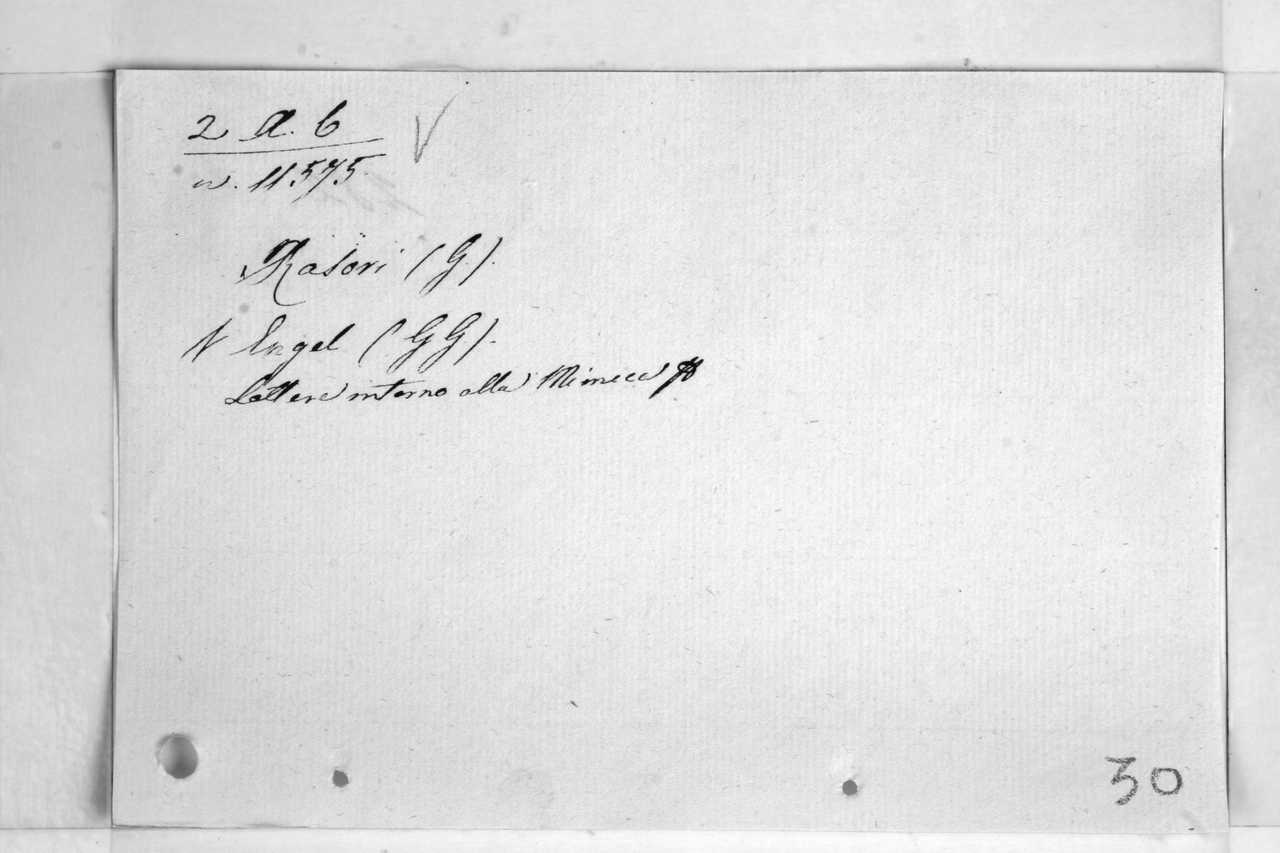 2 A. 6
n. 11575.
Rasori (G.).
V Engel (G G).
Lettere intorno alla Mimica
30